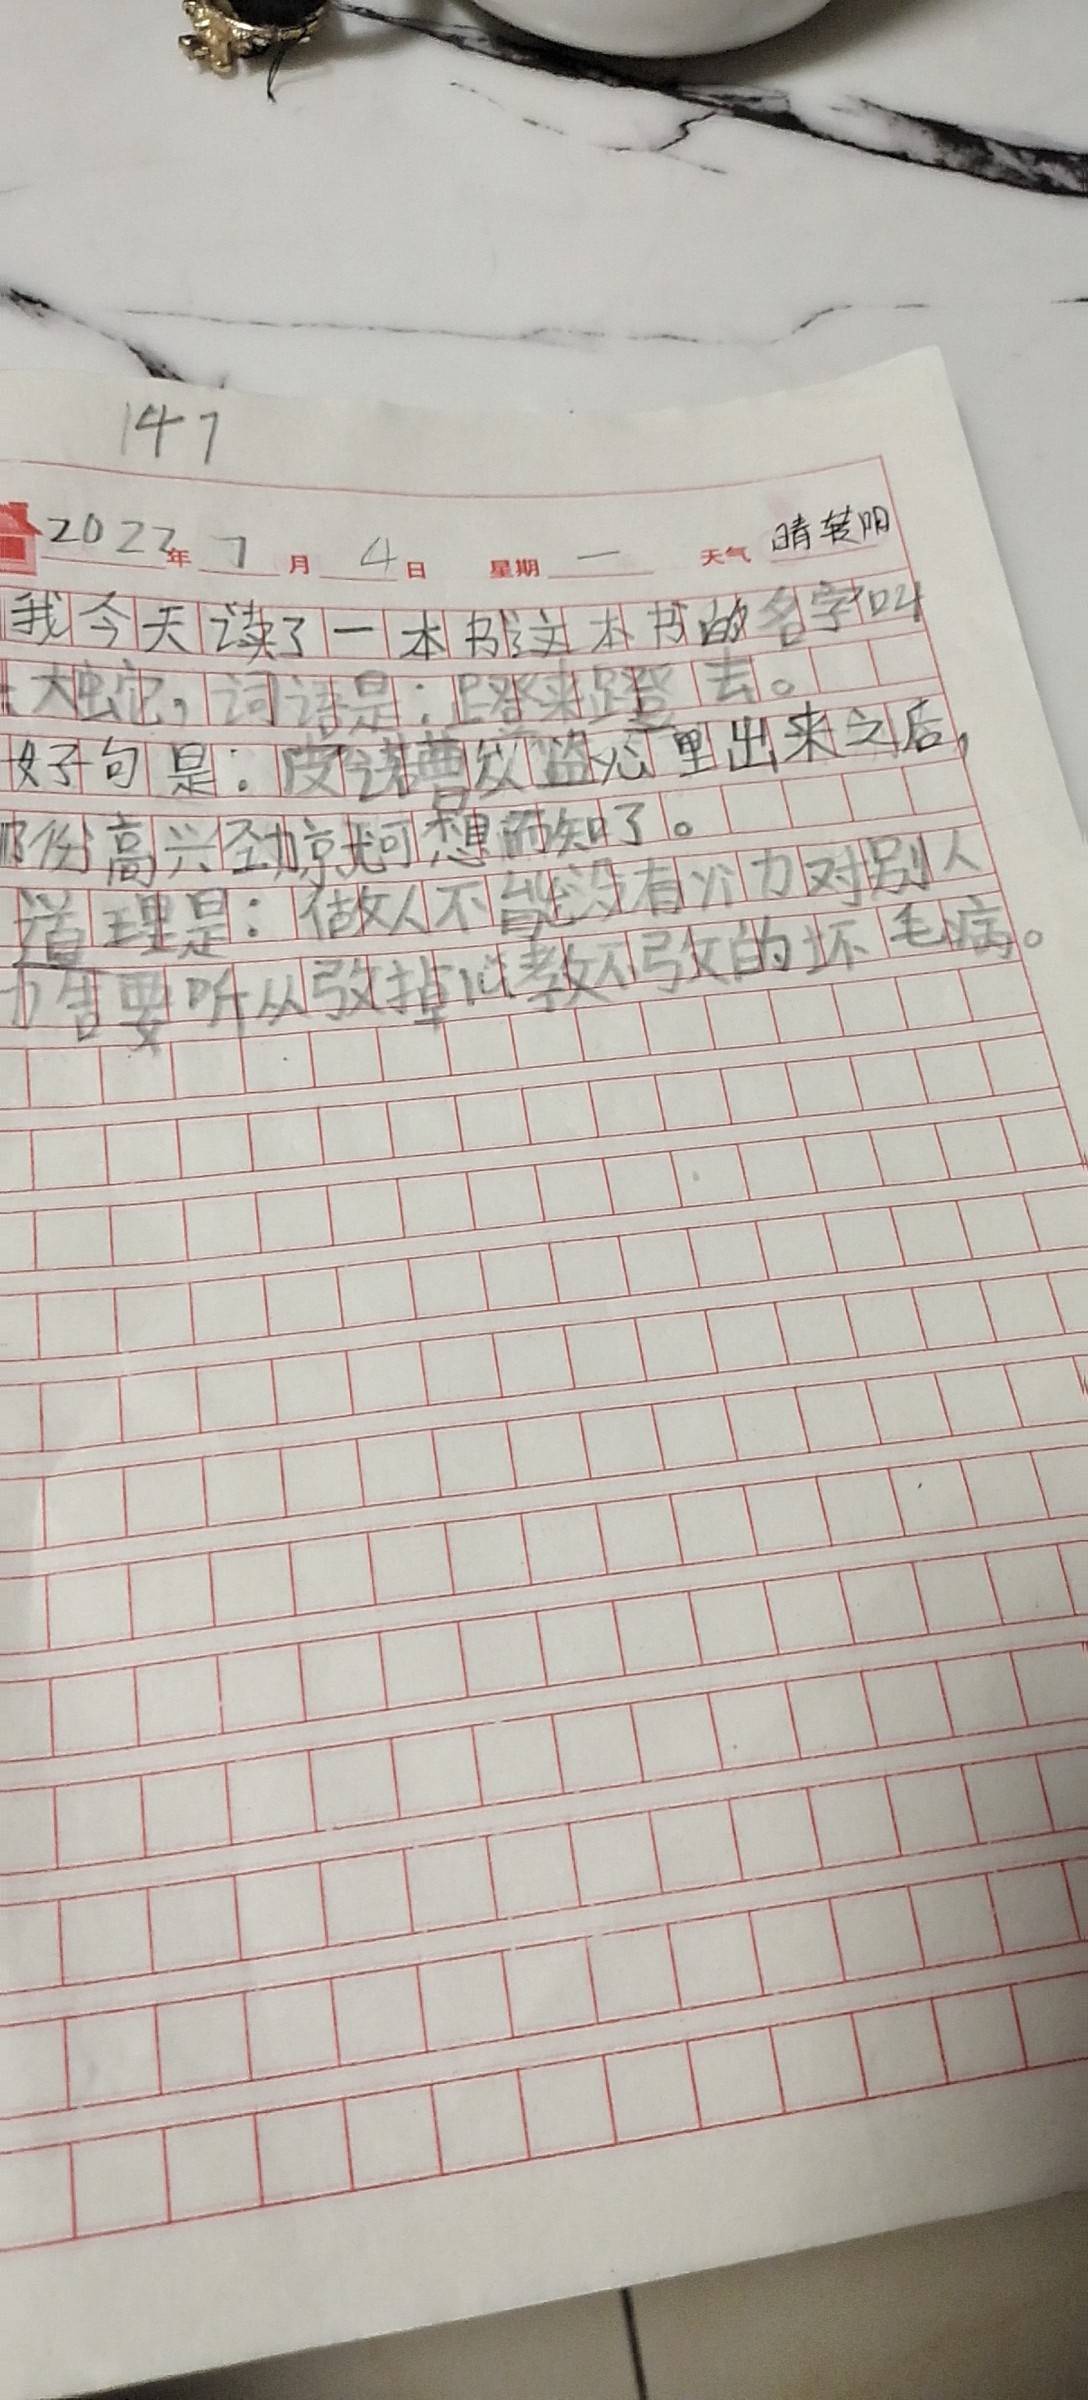 147
2022年7月4日 星期一 天气 晴转阴
我今天读了一本书这本书的名字叫
大蛇,词语是:蹬来蹬去。
好句是:皮诺曹从盗 里出来之后,
那份高兴劲就可想而知了。
道理是:做人不能没有 力对别人
告要听从改掉 教不改的坏毛病。